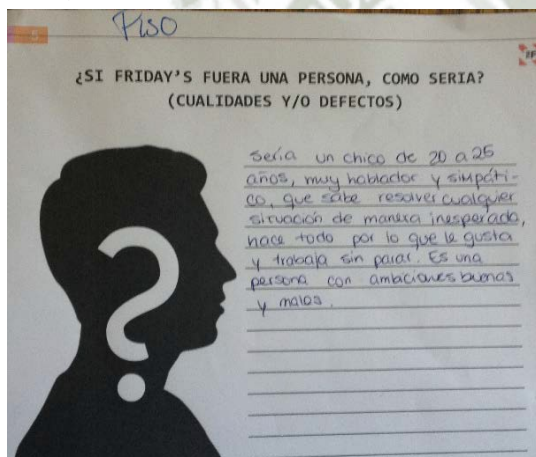 PISO
5
¿SI FRIDAY'S FUERA UNA PERSONA, COMO SERIA?
(CUALIDADES Y/O DEFECTOS)
Sería un chico de 20 a 25
años, muy hablador y simpáti-
co, que sabe resolver cualquier
situación de manera inesperada,
hace todo por lo que le gusta
y trabaja sin parar. Es una
persona con ambiciones buenas
y malas.
?